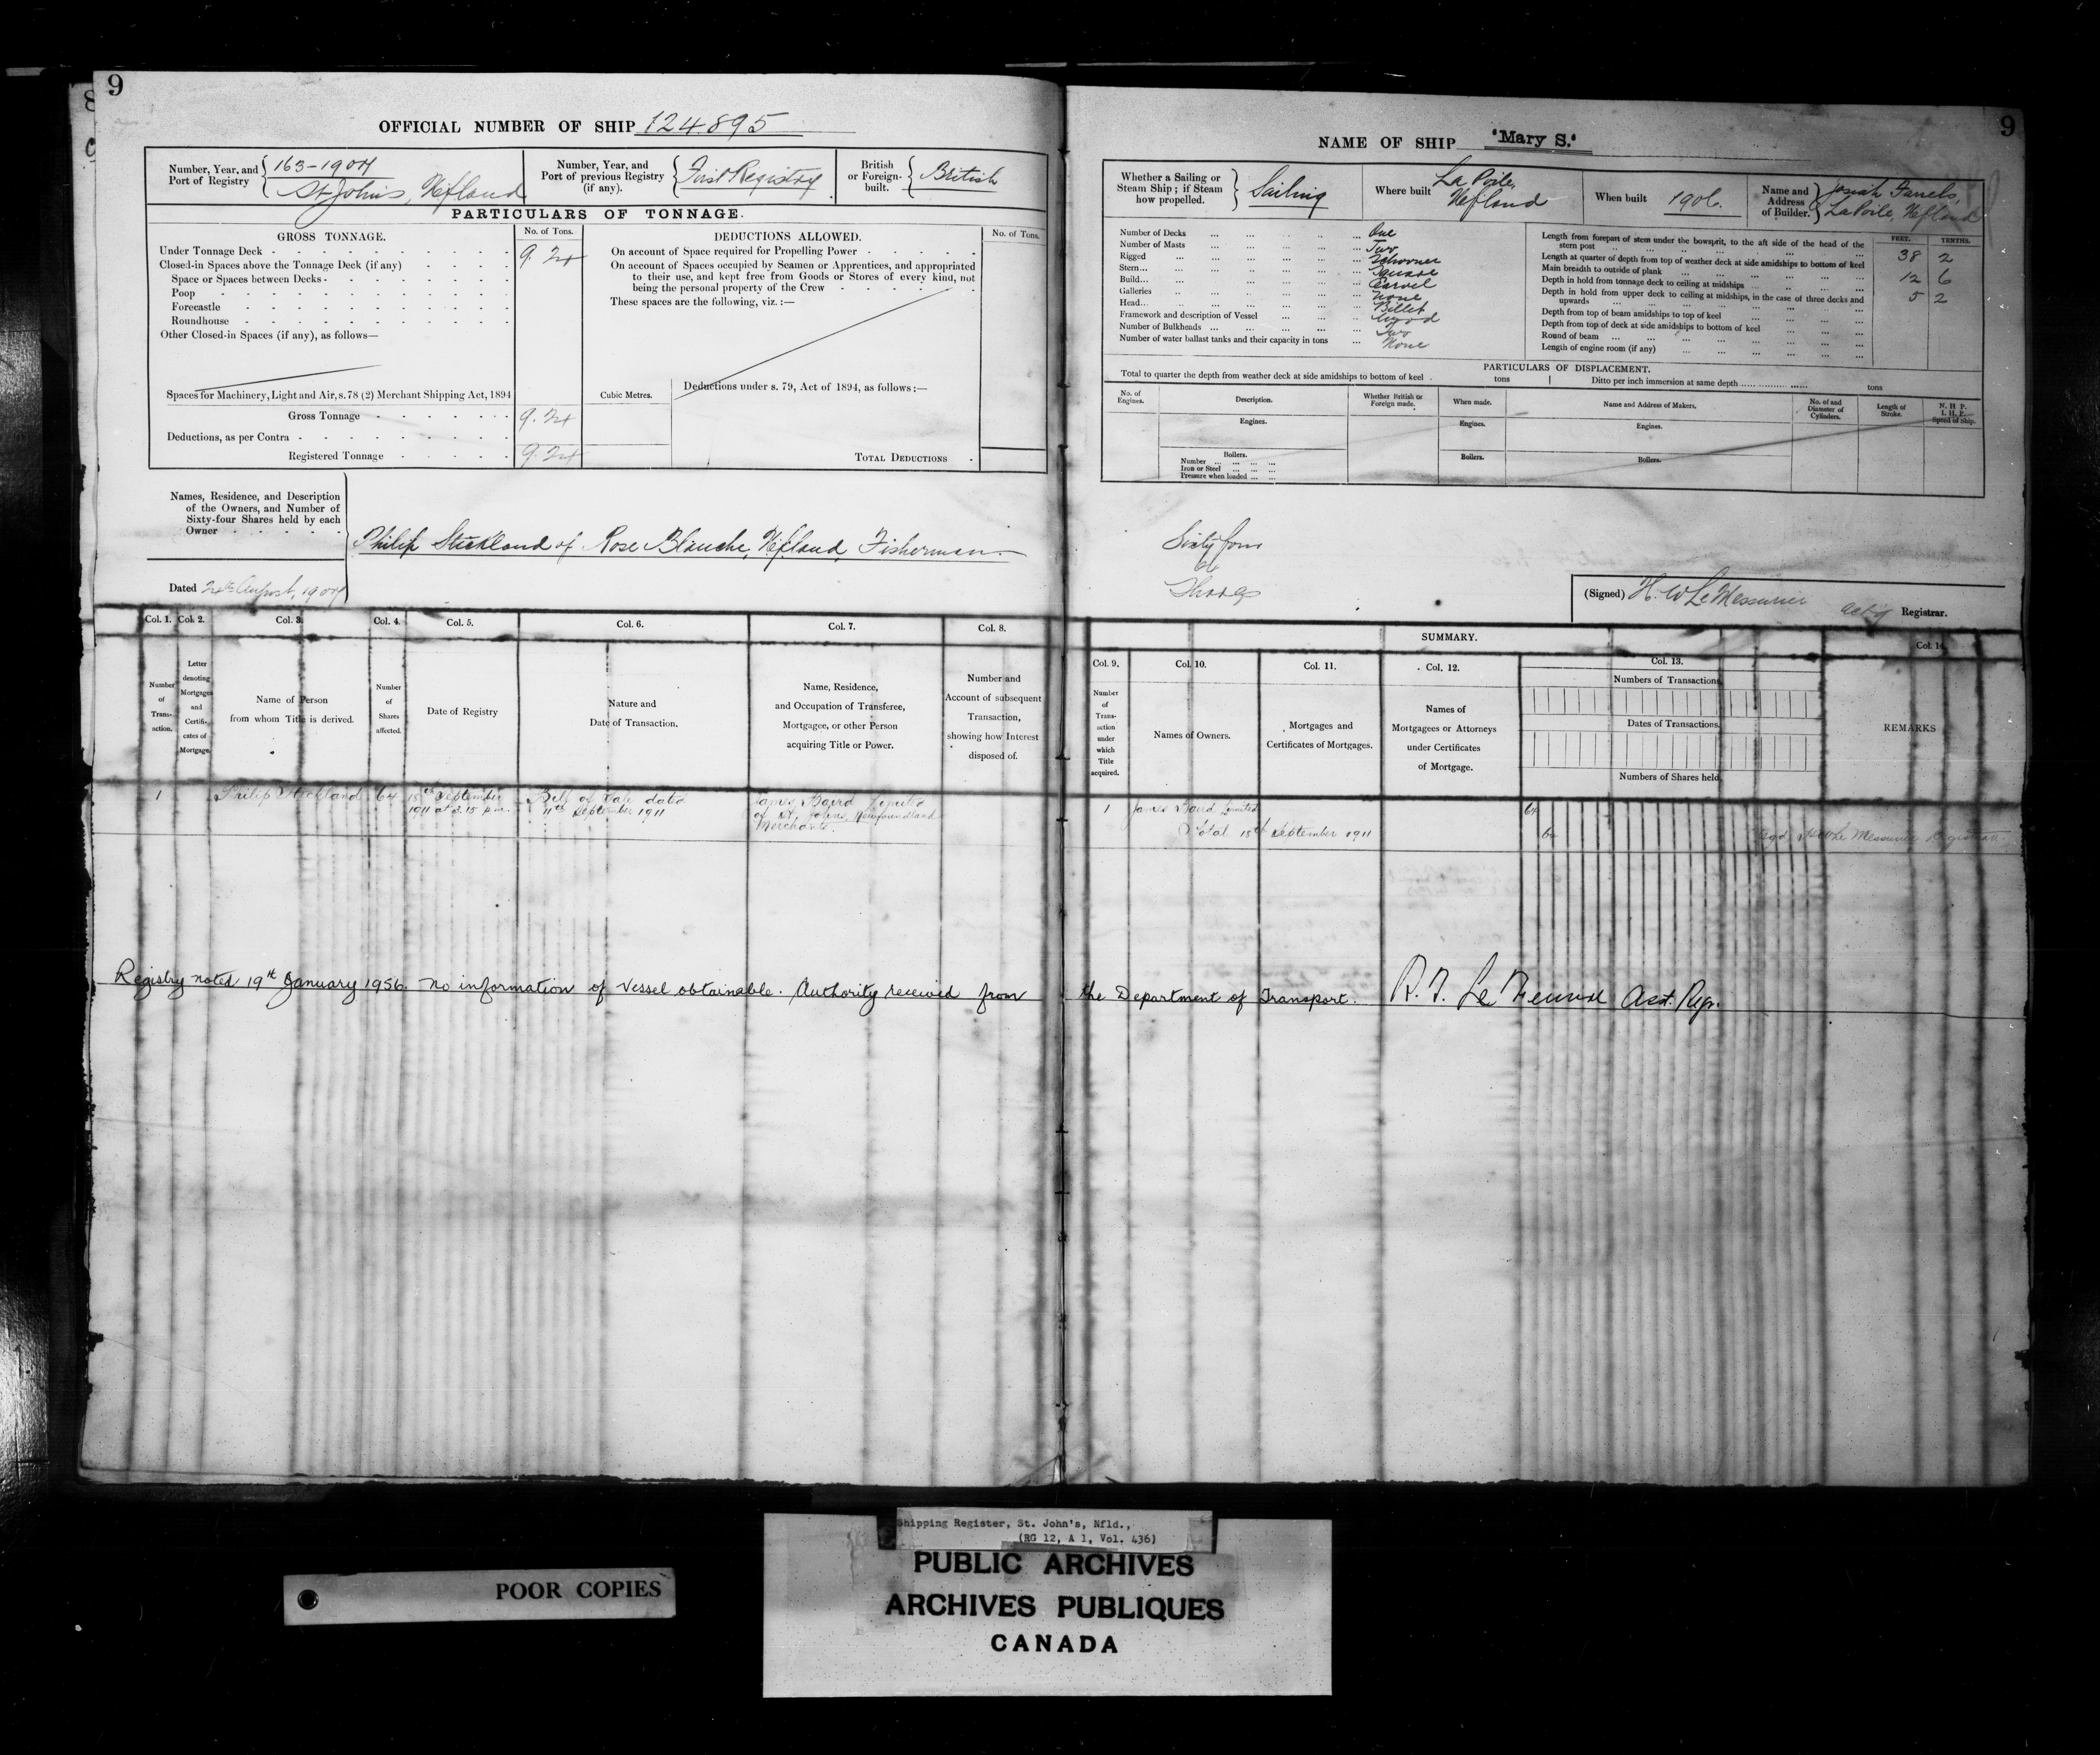 9
OFFICIAL NUMBER OF SHIP 124895
Number, Year, and Port of Registry 163-1907 St Johns, Nfland
Number, Year, and Port of previous Registry (if any). First Registry
British or Foreign-built. British
PARTICULARS OF TONNAGE.
GROSS TONNAGE.
No. of Tons.
DEDUCTIONS ALLOWED.
No. of Tons.
Under Tonnage Deck 9.24
Closed-in Spaces above the Tonnage Deck (if any)
Space or Spaces between Decks
Poop
Forecastle
Roundhouse
Other Closed-in Spaces (if any), as follows—
Spaces for Machinery, Light and Air, s.78 (2) Merchant Shipping Act, 1894
Gross Tonnage 9.24
Deductions, as per Contra
Registered Tonnage 9.24
On account of Space required for Propelling Power
On account of Spaces occupied by Seamen or Apprentices, and appropriated
to their use, and kept free from Goods or Stores of every kind, not
being the personal property of the Crew
These spaces are the following, viz. :—
Cubic Metres.
Deductions under s. 79, Act of 1894, as follows :—
TOTAL DEDUCTIONS
Names, Residence, and Description
of the Owners, and Number of
Sixty-four Shares held by each
Owner
Philip Stickland of Rose Blanche, Nfland, Fisherman
Dated 24th August, 1907
Col. 1.
Col. 2.
Col. 3.
Col. 4.
Col. 5.
Col. 6.
Col. 7.
Col. 8.
Number of Transaction.
Letter denoting Mortgages and Certificates of Mortgage.
Name of Person from whom Title is derived.
Number of Shares affected.
Date of Registry
Nature and Date of Transaction.
Name, Residence, and Occupation of Transferee, Mortgagee, or other Person acquiring Title or Power.
Number and Account of subsequent Transaction, showing how Interest disposed of.
1 Philip Stickland 64 18th September 1911 at 3.15 p.m. Bill of Sale dated 11th September 1911 James Baird Limited of St. Johns, Newfoundland Merchants.
Registry noted 19th January 1956. No information of Vessel obtainable. Authority received from
9
NAME OF SHIP "Mary S."
Whether a Sailing or Steam Ship; if Steam how propelled. Sailing
Where built La Poile, Nfland
When built 1906.
Name and Address of Builder. Josiah Farrels, LaPoile, Nfland
Number of Decks One
Number of Masts Two
Rigged Schooner
Stern Square
Build Carvel
Galleries None
Head Billet
Framework and description of Vessel Wood
Number of Bulkheads Two
Number of water ballast tanks and their capacity in tons None
FEET. TENTHS.
Length from forepart of stem under the bowsprit, to the aft side of the head of the stern post 38 2
Length at quarter of depth from top of weather deck at side amidships to bottom of keel
Main breadth to outside of plank 12 6
Depth in hold from tonnage deck to ceiling at midships 5 2
Depth in hold from upper deck to ceiling at midships, in the case of three decks and upwards
Depth from top of beam amidships to top of keel
Depth from top of deck at side amidships to bottom of keel
Round of beam
Length of engine room (if any)
PARTICULARS OF DISPLACEMENT.
Total to quarter the depth from weather deck at side amidships to bottom of keel tons
Ditto per inch immersion at same depth tons
No. of Engines.
Description.
Whether British or Foreign made.
When made.
Name and Address of Makers.
No. of and Diameter of Cylinders.
Length of Stroke.
N. H. P.
I. H. P.
Speed of Ship.
Engines.
Engines.
Engines.
Boilers.
Number
Iron or Steel
Pressure when loaded
Boilers.
Boilers.
Sixty four
64
Shares
(Signed) H. W LeMessurier acting Registrar.
SUMMARY.
Col. 9.
Col. 10.
Col. 11.
Col. 12.
Col. 13.
Col. 14
Number of Transaction under which Title acquired.
Names of Owners.
Mortgages and Certificates of Mortgages.
Names of Mortgagees or Attorneys under Certificates of Mortgage.
Numbers of Transactions
Dates of Transactions.
Numbers of Shares held
REMARKS
1 James Baird Limited 64
Total 18th September 1911 64 Sgd H W Le Messurier Registrar
the Department of Transport. Asst. Regr.
Shipping Register, St. John's, Nfld.,
(RG 12, A 1, Vol. 436)
POOR COPIES
PUBLIC ARCHIVES
ARCHIVES PUBLIQUES
CANADA